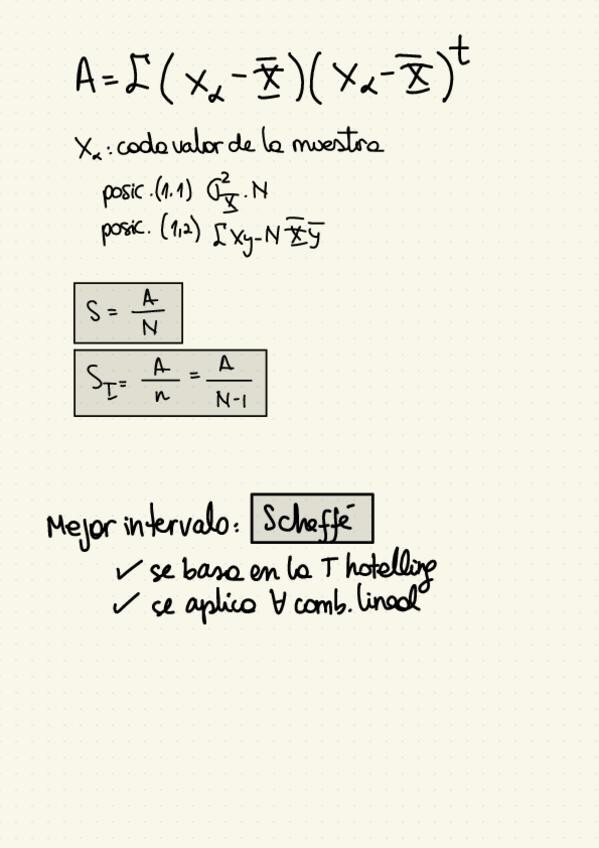 A = Σ(X_α - X̄)(X_α - X̄)^t
X_α: cada valor de la muestra
posic. (1,1) σ²_X . N
posic. (1,2) Σxy - N X̄ȳ
S = A/N
S_I = A/n = A/(N-1)
Mejor intervalo: Scheffé
✓ se basa en la T hotelling
✓ se aplica ∀ comb. lineal